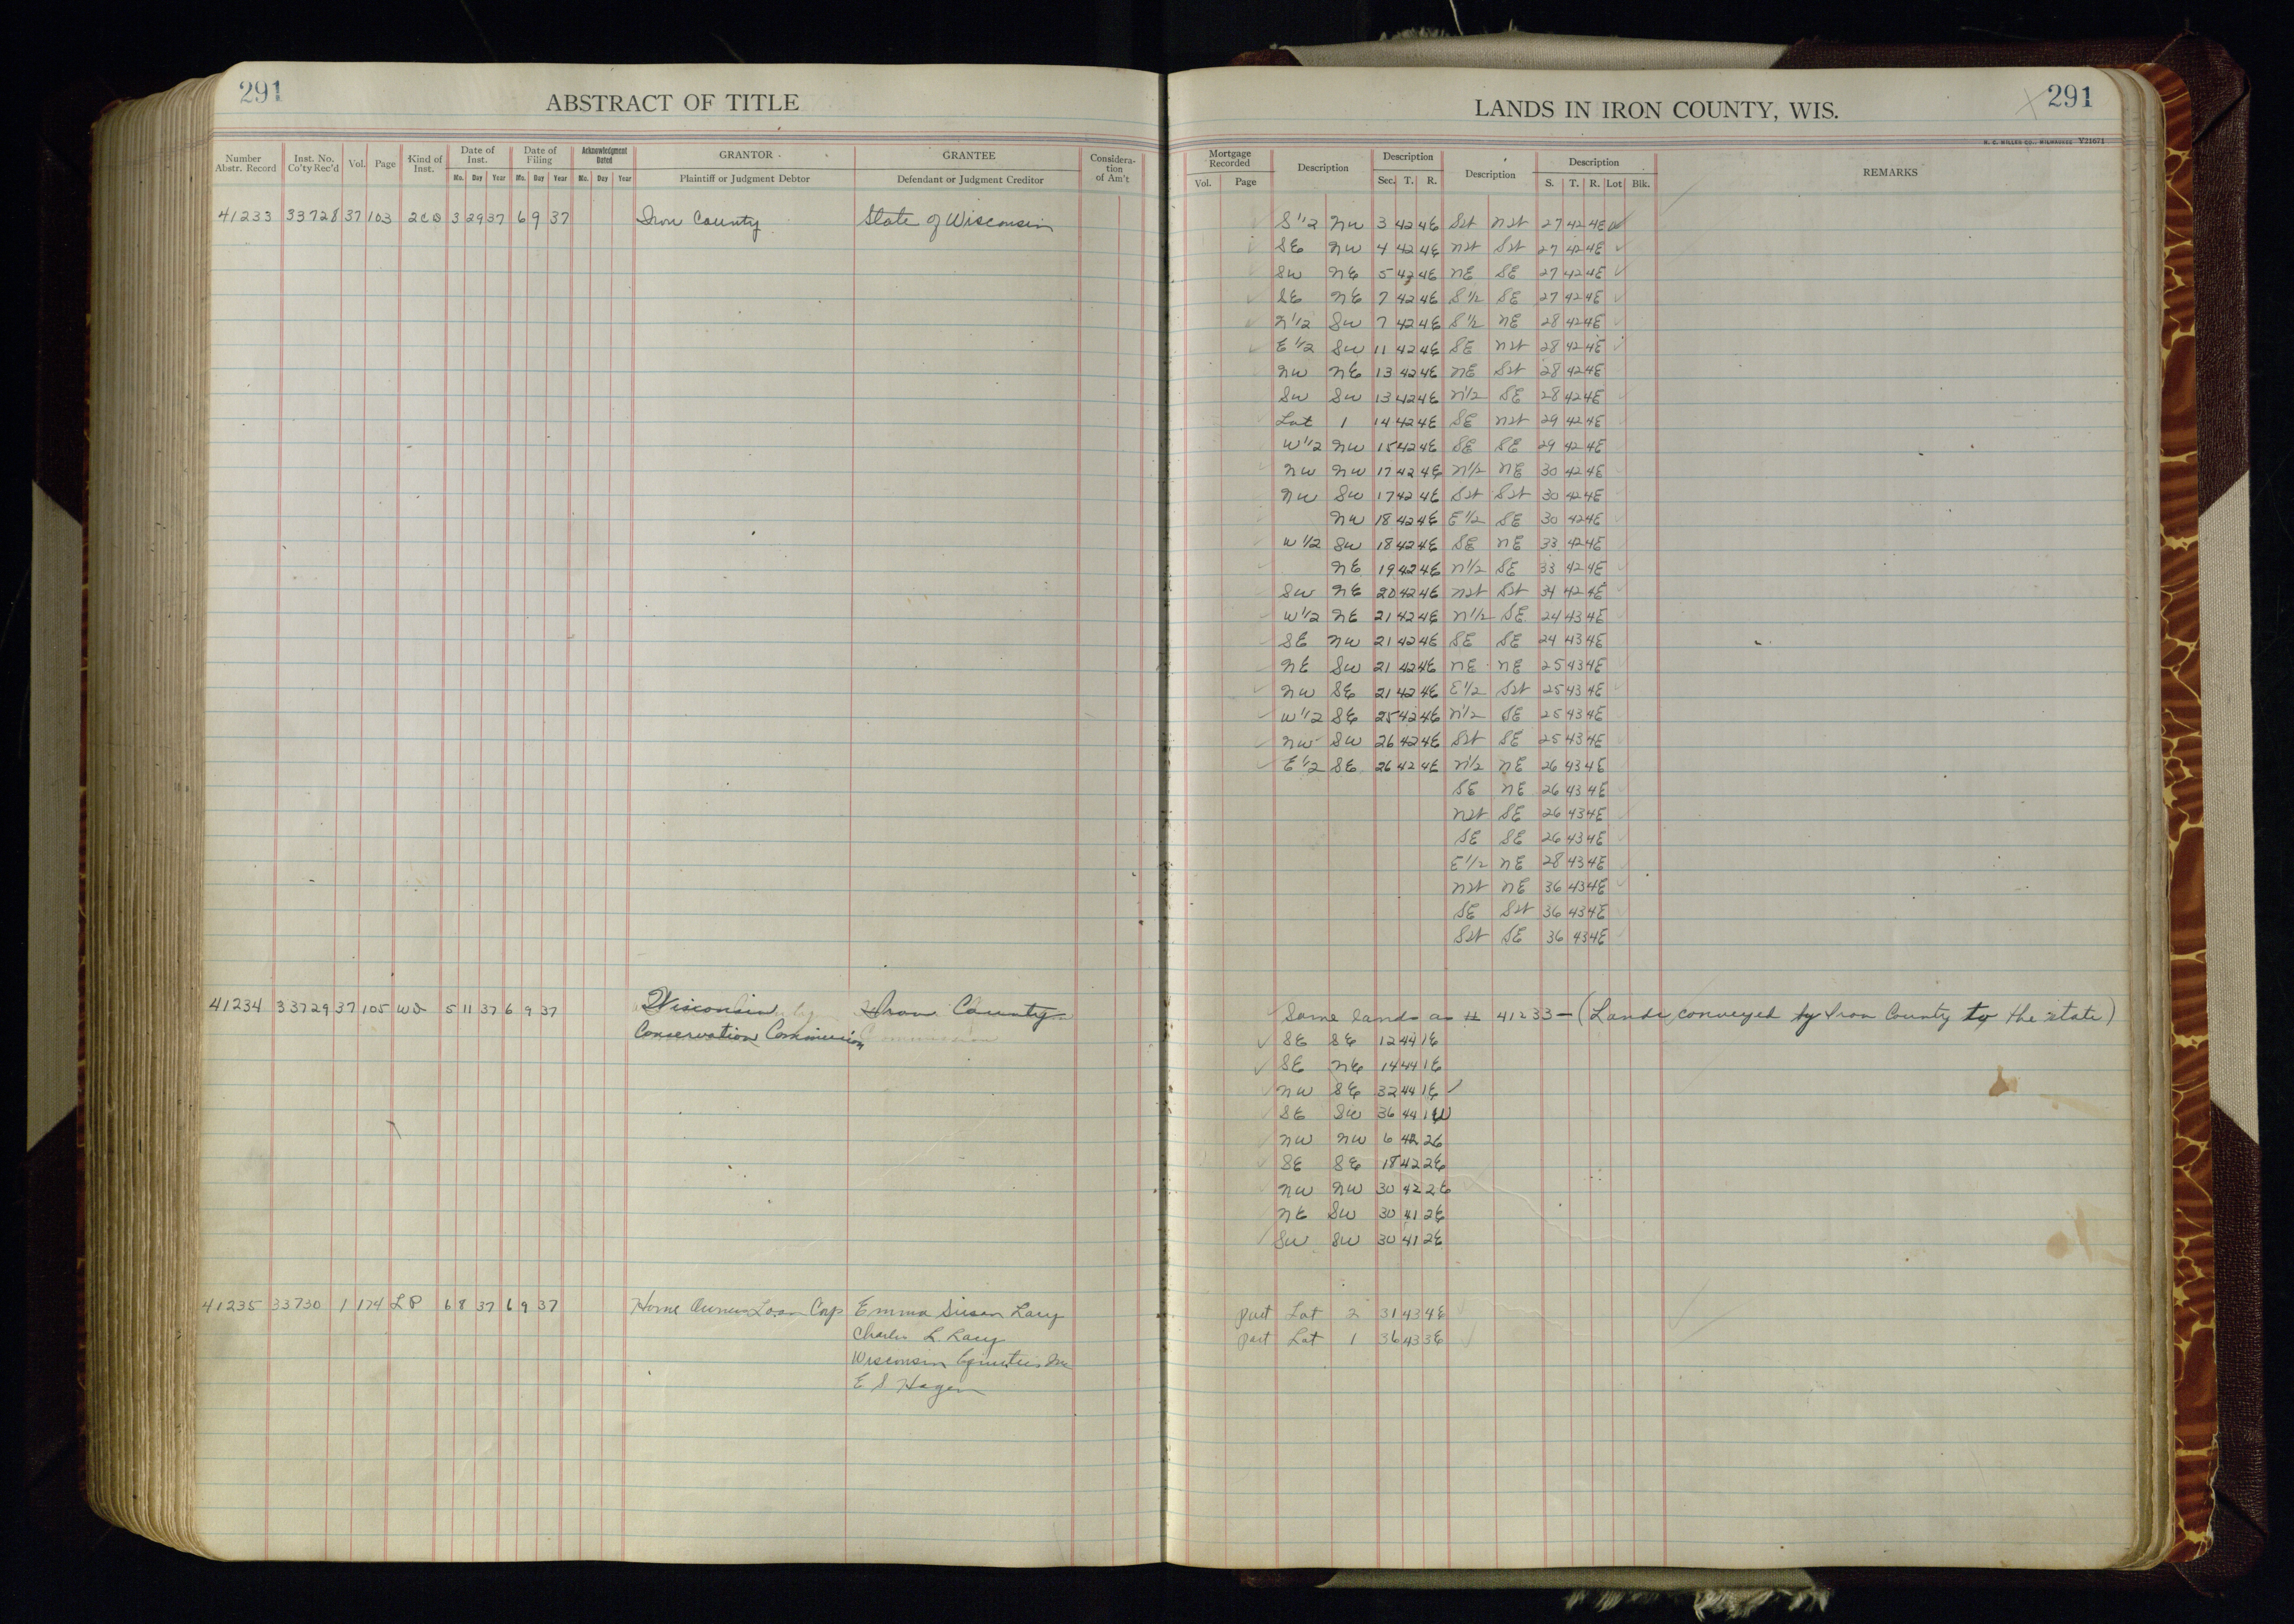 291
ABSTRACT OF TITLE
Number Abstr. Record | Inst. No. Co'ty Rec'd | Vol. | Page | Kind of Inst. | Date of Inst. Mo. Day Year | Date of Filing Mo. Day Year | Acknowledgment Dated Mo. Day Year | GRANTOR Plaintiff or Judgment Debtor | GRANTEE Defendant or Judgment Creditor | Consideration of Am't
41233 33728 37 103 2CD 3 29 37 6 9 37 Iron County State of Wisconsin
41234 33729 37 105 WD 5 11 37 6 9 37 Wisconsin Iron County
Conservation Commission
41235 33730 1 174 LP 6 8 37 6 9 37 Home Owners Loan Corp Emma Susan Lacy
Charles L. Lacy
Wisconsin Equities Inc
E S Hagen
LANDS IN IRON COUNTY, WIS.
291
H. C. MILLER CO., MILWAUKEE Y21671
Mortgage Recorded Vol. Page | Description | Description Sec. T. R. | Description | Description S. T. R. Lot Blk. | REMARKS
S 1/2 NW 3 42 4E SW NW 27 42 4E
SE NW 4 42 4E NW SW 27 42 4E
SW NE 5 42 4E NE SE 27 42 4E
SE NE 7 42 4E S 1/2 SE 27 42 4E
N 1/2 SW 7 42 4E S 1/2 NE 28 42 4E
E 1/2 SW 11 42 4E SE NW 28 42 4E
NW NE 13 42 4E NE SW 28 42 4E
SW SW 13 42 4E N 1/2 SE 28 42 4E
Lot 1 14 42 4E SE NW 29 42 4E
W 1/2 NW 15 42 4E SE SE 29 42 4E
NW NW 17 42 4E N 1/2 NE 30 42 4E
NW SW 17 42 4E SW SW 30 42 4E
NW 18 42 4E E 1/2 SE 30 42 4E
W 1/2 SW 18 42 4E SE NE 33 42 4E
NE 19 42 4E N 1/2 SE 33 42 4E
SW NE 20 42 4E NW SW 34 42 4E
W 1/2 NE 21 42 4E N 1/2 SE 24 43 4E
SE NW 21 42 4E SE SE 24 43 4E
NE SW 21 42 4E NE NE 25 43 4E
NW SE 21 42 4E E 1/2 SW 25 43 4E
W 1/2 SE 25 42 4E N 1/2 SE 25 43 4E
NW SW 26 42 4E SW SE 25 43 4E
E 1/2 SE 26 42 4E N 1/2 NE 26 43 4E
SE NE 26 43 4E
NW SE 26 43 4E
SE SE 26 43 4E
E 1/2 NE 28 43 4E
NW NE 36 43 4E
SE SW 36 43 4E
SW SE 36 43 4E
Same lands as # 41233 - (Lands conveyed by Iron County to the state)
SE SE 12 44 1E
SE NE 14 44 1E
NW SE 32 44 1E
SE SW 36 44 1W
NW NW 6 42 2E
SE SE 18 42 2E
NW NW 30 42 2E
NE SW 30 41 2E
SW SW 30 41 2E
part Lot 2 31 43 4E
part Lot 1 36 43 3E